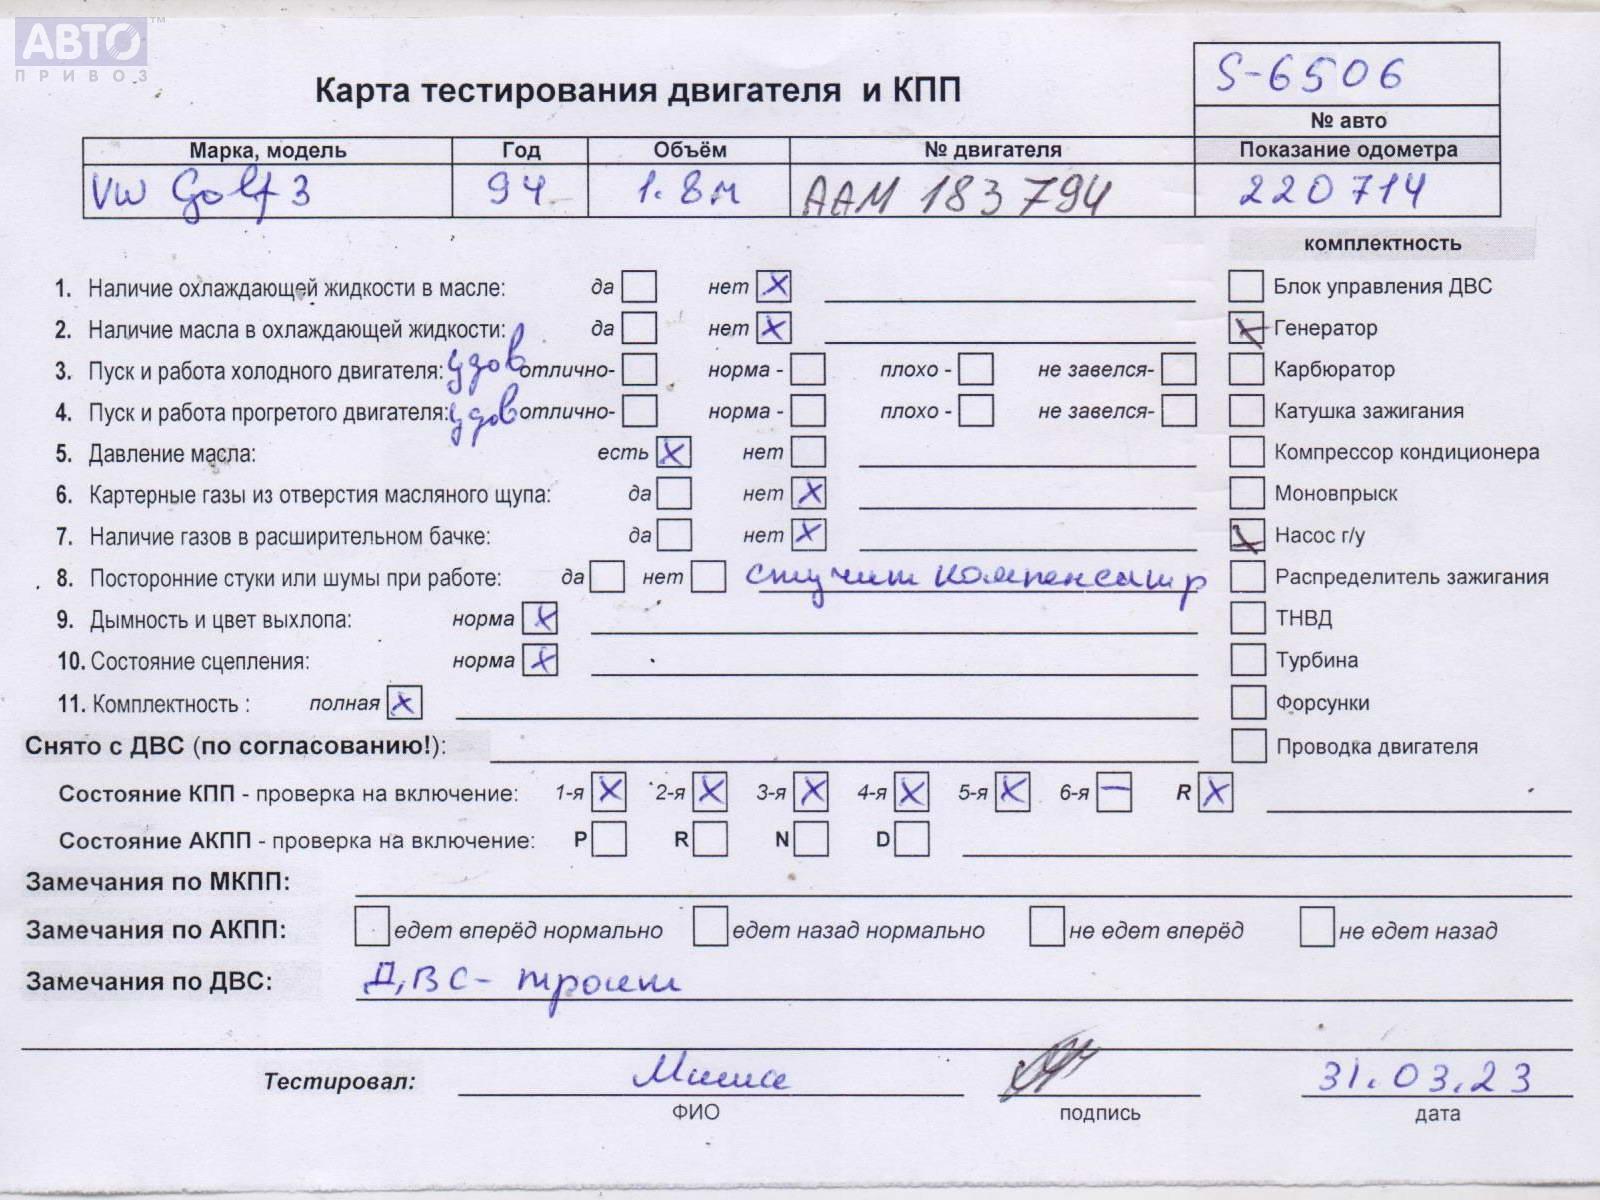 АВТО™
ПРИВОЗ
Карта тестирования двигателя и КПП
S-6506
№ авто
Марка, модель Год Объём № двигателя Показание одометра
VW Golf 3 94 1.8м AAM 183 794 220714
комплектность
1. Наличие охлаждающей жидкости в масле: да нет X Блок управления ДВС
2. Наличие масла в охлаждающей жидкости: да нет X X Генератор
3. Пуск и работа холодного двигателя: удов отлично- норма - плохо - не завелся- Карбюратор
4. Пуск и работа прогретого двигателя: удов отлично- норма - плохо - не завелся- Катушка зажигания
5. Давление масла: есть X нет Компрессор кондиционера
6. Картерные газы из отверстия масляного щупа: да нет X Моновпрыск
7. Наличие газов в расширительном бачке: да нет X X Насос г/у
8. Посторонние стуки или шумы при работе: да нет стучит компенсатр Распределитель зажигания
9. Дымность и цвет выхлопа: норма X ТНВД
10. Состояние сцепления: норма X Турбина
11. Комплектность : полная X Форсунки
Снято с ДВС (по согласованию!): Проводка двигателя
Состояние КПП - проверка на включение: 1-я X 2-я X 3-я X 4-я X 5-я X 6-я — R X
Состояние АКПП - проверка на включение: P R N D
Замечания по МКПП:
Замечания по АКПП: едет вперёд нормально едет назад нормально не едет вперёд не едет назад
Замечания по ДВС: ДВС - троит
Тестировал: Миша 31.03.23
ФИО подпись дата